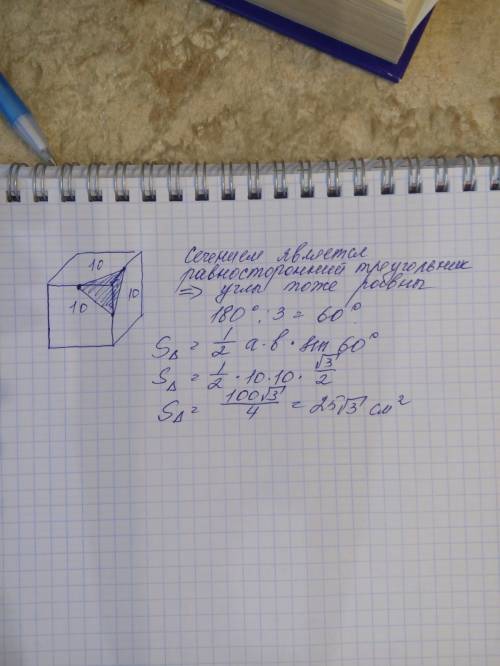 Сечением является
равносторонний треугольник
⇒ углы тоже равны
180° : 3 = 60°
S△ = 1/2 a · b · sin 60°
S△ = 1/2 · 10 · 10 · √3/2
S△ = 100√3/4 = 25√3 см²
10
10
10